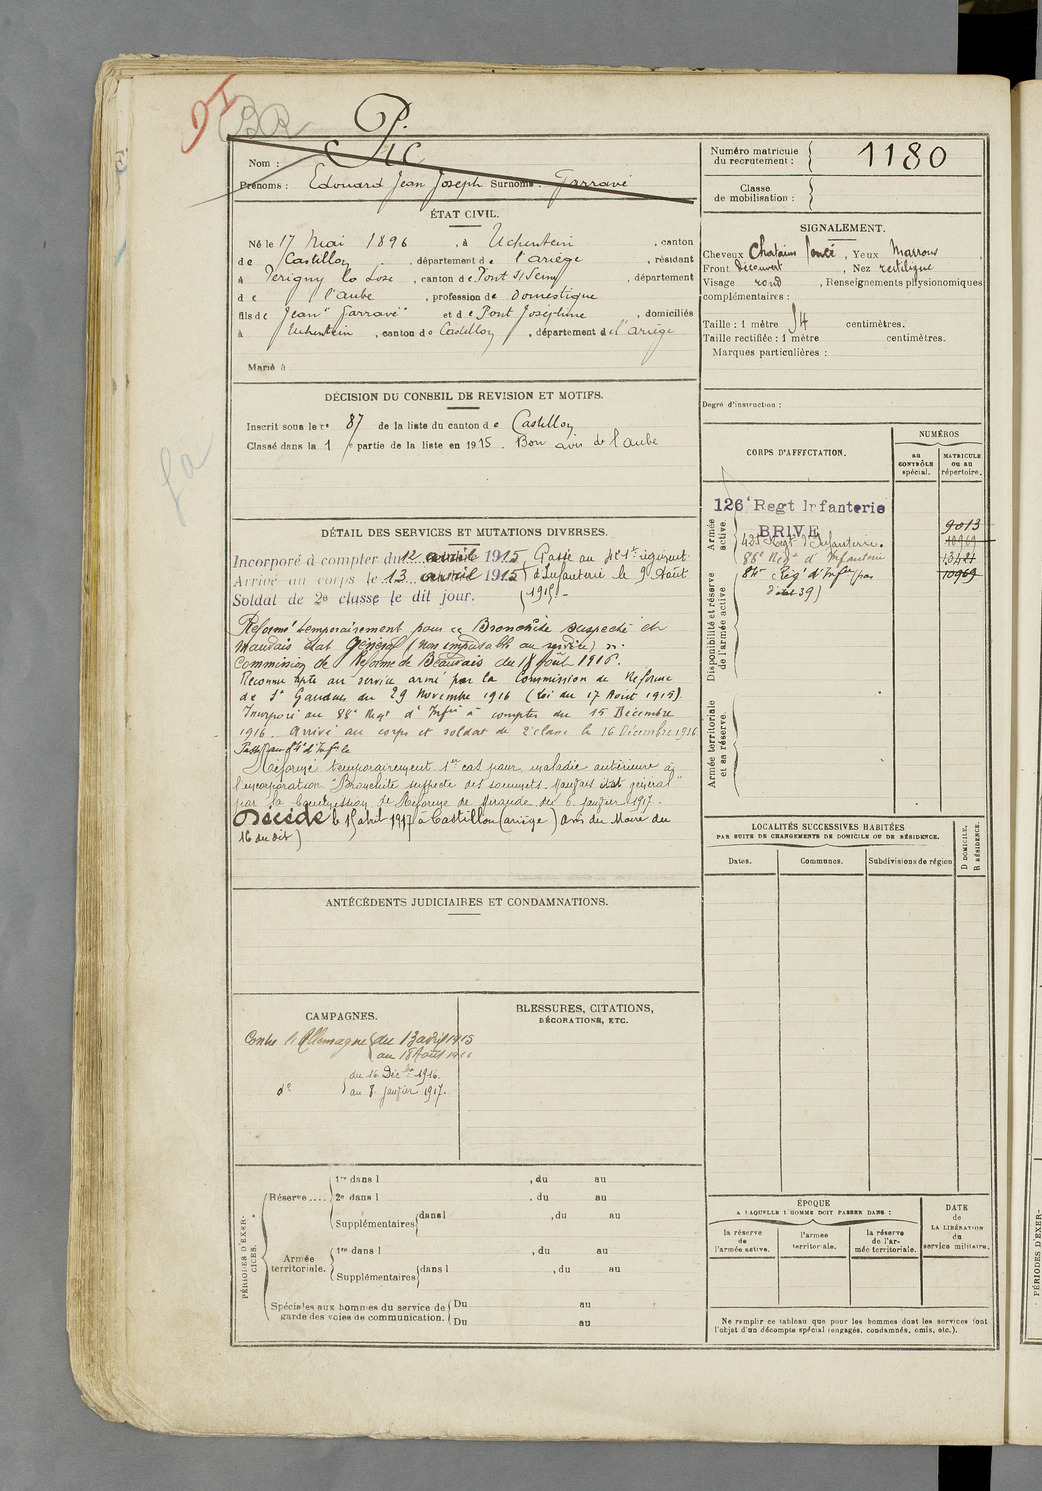 BR
Nom : Pic
Prénoms : Edouard Jean Joseph Surnoms : Garravé
Numéro matricule du recrutement : 1180
Classe de mobilisation :
ÉTAT CIVIL.
Né le 17 Mai 1896, à Uchentein, canton
de Castillon, département de l'ariège, résidant
à Perigny la Rose, canton de Pont s/ Seine, département
de l'aube, profession de Domestique
fils de Jean "Garravé" et de Pont Joséphine, domiciliés
à Uchentein, canton de Castillon, département de l'ariège
Marié à
SIGNALEMENT.
Cheveux Chatains foncé, Yeux Marrons
Front découvert, Nez rectiligne
Visage rond, Renseignements physionomiques
complémentaires :
Taille : 1 mètre 54 centimètres.
Taille rectifiée : 1 mètre centimètres.
Marques particulières :
Degré d'instruction :
DÉCISION DU CONSEIL DE REVISION ET MOTIFS.
Inscrit sous le n° 87 de la liste du canton de Castillon
Classé dans la 1e partie de la liste en 1915. Bon avis de l'aube
CORPS D'AFFECTATION.
NUMÉROS
au CONTRÔLE spécial.
MATRICULE ou au répertoire.
Armée active.
Disponibilité et réserve de l'armée active
Armée territoriale et sa réserve.
126e Regt Infanterie 9013
BRIVE
421 Regt d'Infanterie. 10969
88e Regt d'Infanterie 13481
(pas d'état 39) 10969
DÉTAIL DES SERVICES ET MUTATIONS DIVERSES.
Incorporé à compter du 12 avril 1915 Passé au 421e régiment
Arrivé au corps le 13 avril 1915 d'Infanterie le 9 Août
Soldat de 2e classe le dit jour. 1915 -
Reformé temporairement pour Bronchite suspecte et
Mauvais état général (non imputable au service)
Commission de Réforme de Beauvais du 18 Août 1916.
Reconnu apte au service armé par la Commission de Reforme
de St Gaudens du 29 Novembre 1916 (Loi du 17 Août 1915)
Incorporé au 88e Regt d'Infie à compter du 15 Décembre
1916. Arrivé au corps et soldat de 2e classe le 16 Décembre 1916.
Réformé temporairement 1er cas pour maladie antérieure à
l'incorporation "Bronchite suspecte des sommets. Mauvais état général"
par la Commission de Réforme de Mirande du 6 janvier 1917.
Décédé le 15 avril 1917 à Castillon (ariège) avis du Maire du
16 du dit)
LOCALITÉS SUCCESSIVES HABITÉES
PAR SUITE DE CHANGEMENTS DE DOMICILE OU DE RÉSIDENCE.
Dates.
Communes.
Subdivisions de région
D DOMICILE.
R RÉSIDENCE.
ANTÉCÉDENTS JUDICIAIRES ET CONDAMNATIONS.
CAMPAGNES.
Contre l'Allemagne du 13 avril 1915
au 18 Août 1916
du 16 Décbre 1916.
do au 8 janvier 1917.
BLESSURES, CITATIONS,
DÉCORATIONS, ETC.
PÉRIODES D'EXERCICES.
Réserve....
1re dans l , du au
2e dans l , du au
Supplémentaires dans l , du au
Armée territoriale.
1re dans l , du au
Supplémentaires dans l , du au
Spéciales aux hommes du service de garde des voies de communication.
Du au
Du au
ÉPOQUE
A LAQUELLE L'HOMME DOIT PASSER DANS :
la réserve de l'armée active.
l'armée territoriale.
la réserve de l'armée territoriale.
DATE de LA LIBÉRATION du service militaire.
Ne remplir ce tableau que pour les hommes dont les services font
l'objet d'un décompte spécial (engagés, condamnés, omis, etc.).
PÉRIODES D'EXER-